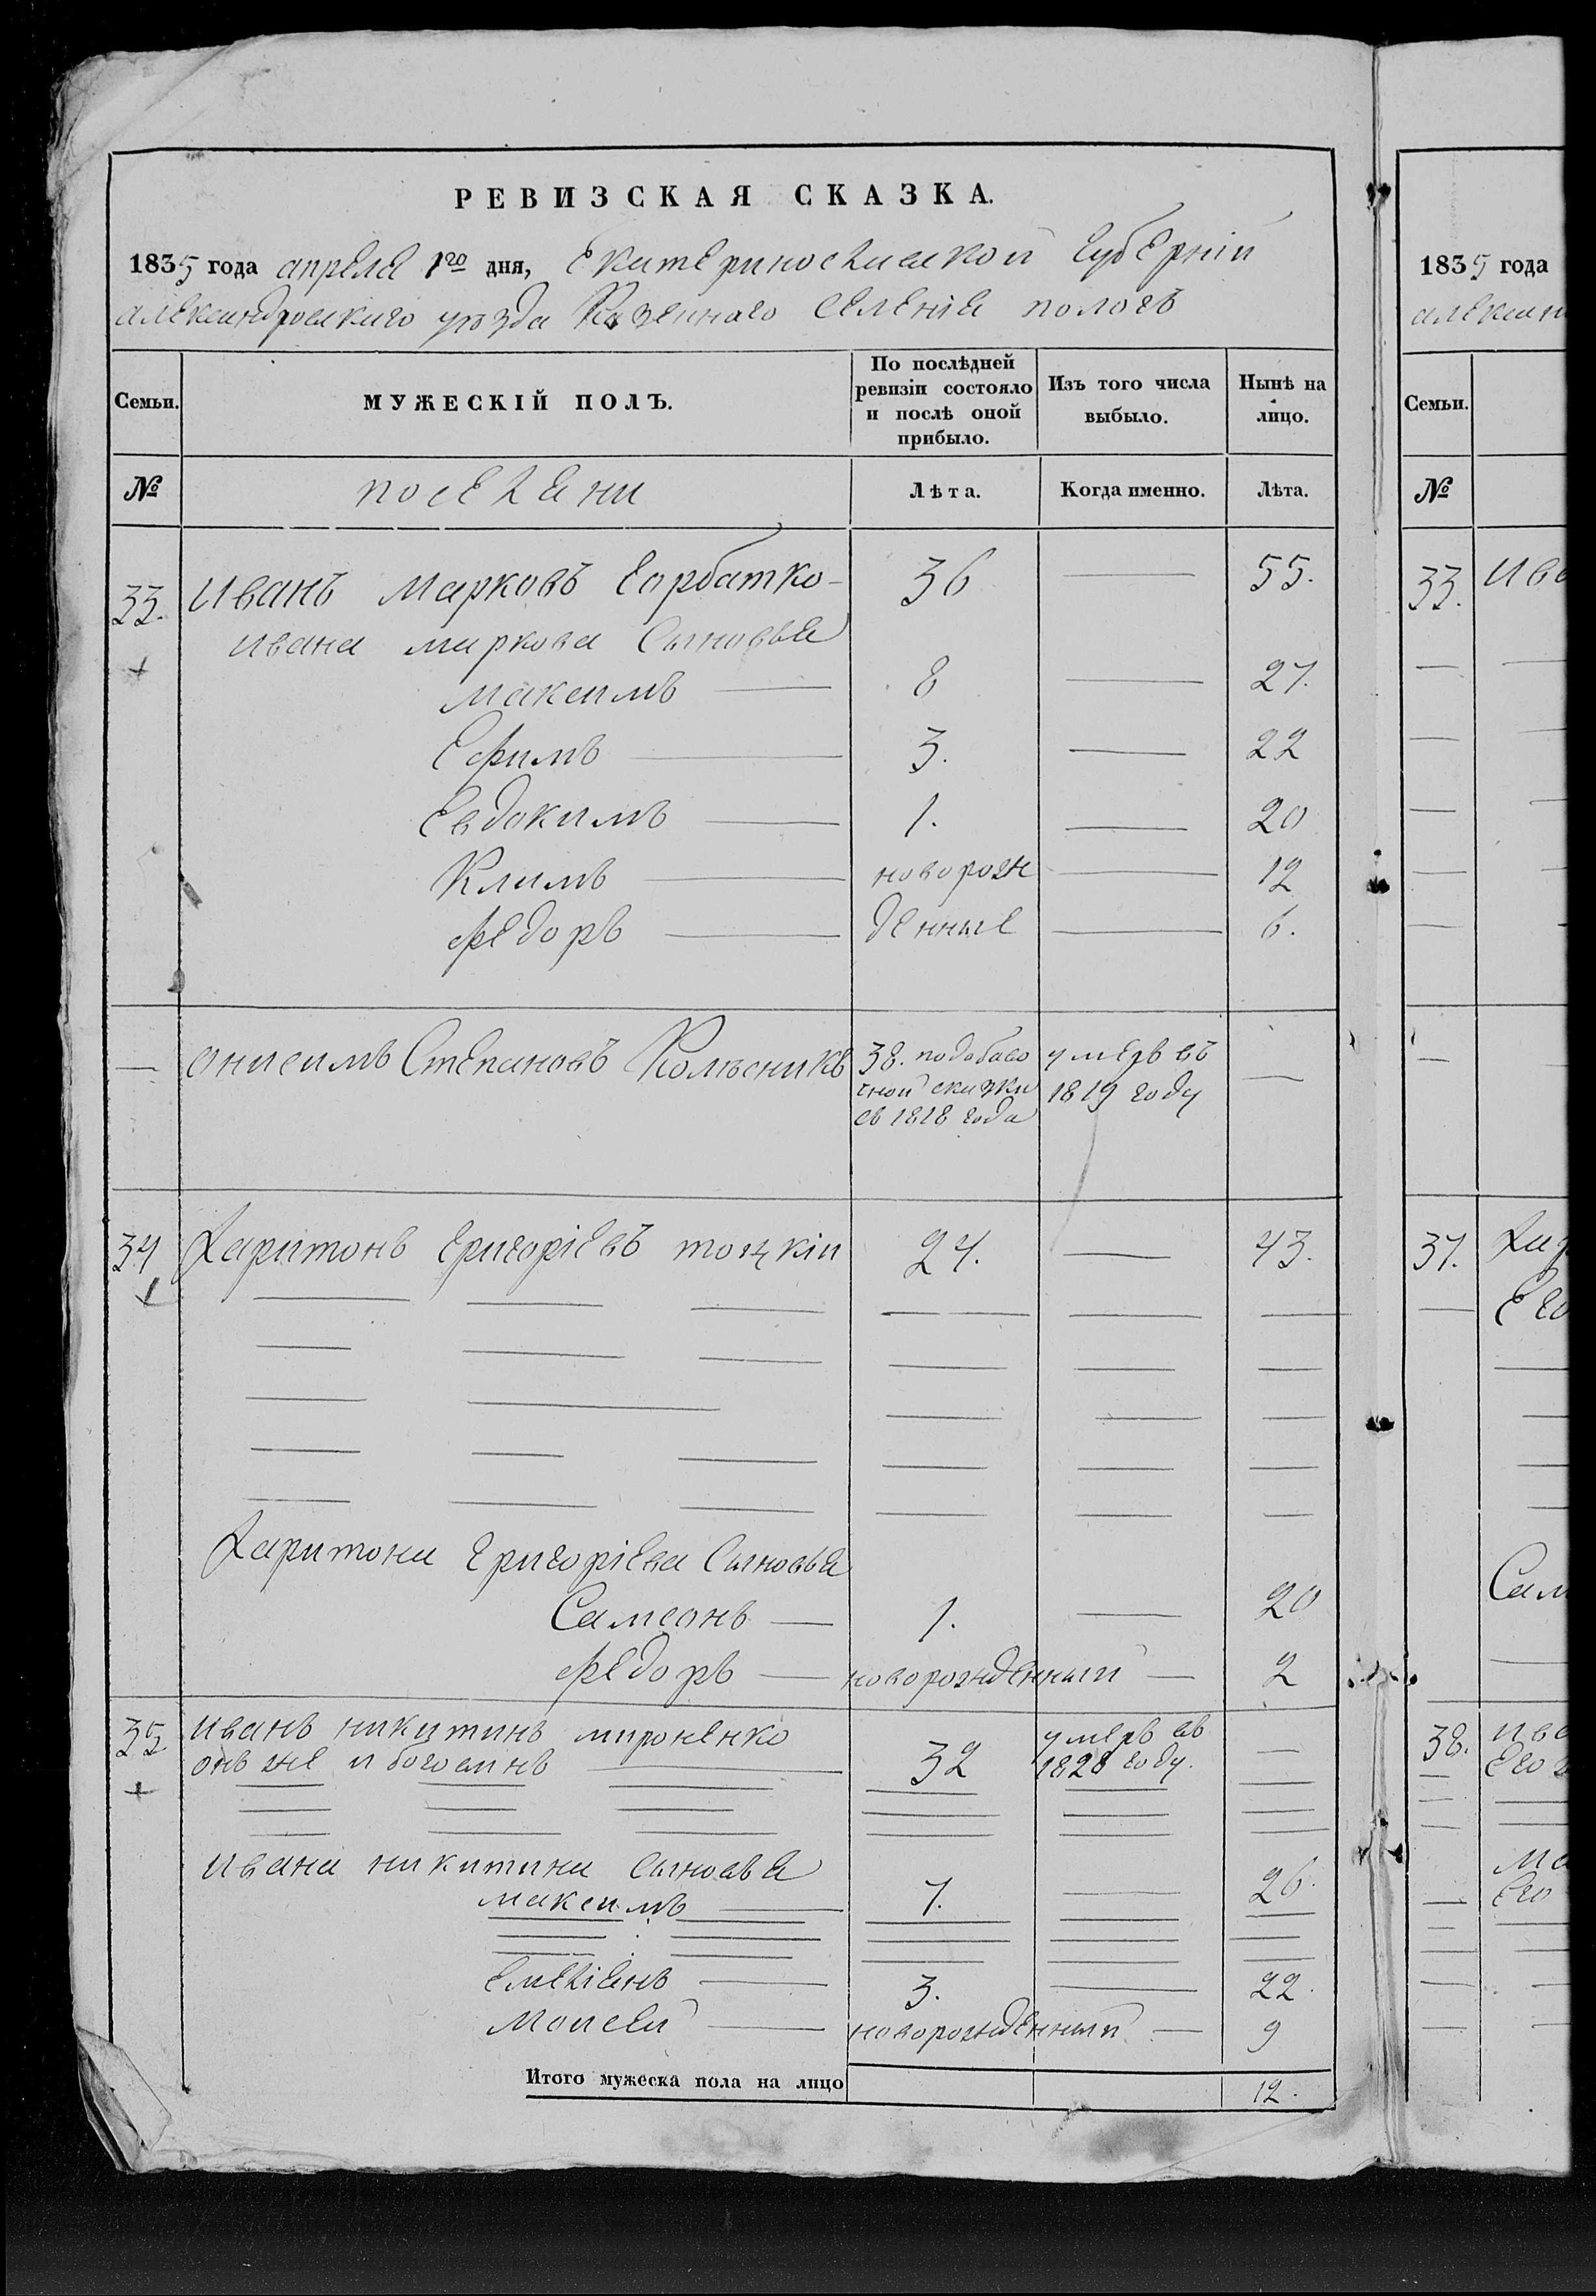 РЕВИЗСКАЯ СКАЗКА.
1835 года апреля 1го дня, Екатеринославской Губерніи
александровскаго уѣзда Казеннаго Селенія пологъ
Семьи.
МУЖЕСКІЙ ПОЛЪ.
По послѣдней ревизіи состояло и послѣ оной прибыло.
Изъ того числа выбыло.
Нынѣ на лицо.
№ поселяни Лѣта. Когда именно. Лѣта.
33. Иванъ Марковъ Горбатко- 36 — 55.
Ивана маркова Сыновья
максимъ — 8 — 27.
Ефимъ — 3. — 22
Евдокимъ — 1. — 20
Климъ — новорож — 12
Федоръ — денные — 6.
— онисимъ Степановъ Колѣсникъ 38. подобаво умеръ въ —
чной сказки 1819 году
съ 1818 года
34 Харитонъ григоріевъ тоцкіи 24. — 43.
Харитона григоріева Сыновья
Самсонъ — 1. — 20
Федоръ — новорожденный — 2
35 Иванъ никитинъ мироненко умеръ въ
онъ же и 32 1828 году. —
Ивана никитина сыновья
максимъ — 7. — 26.
Емеліянъ — 3. — 22.
Моисей — новорожденный — 9
Итого мужеска пола на лицо 12.
1835 года
алексан
Семьи.
№
33. Ива
37. Хар
Его
Сам
38. Ива
Его
Ма
Его